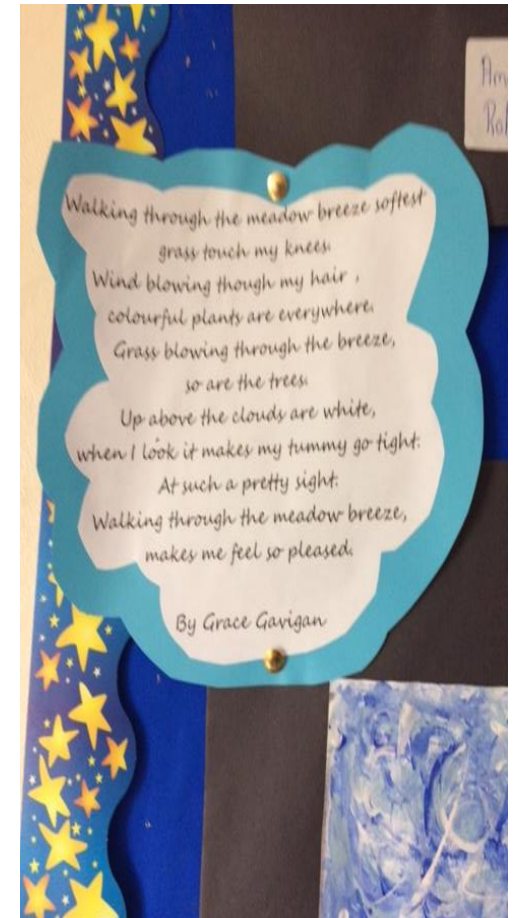 Walking through the meadow breeze softest
grass touch my knees.
Wind blowing though my hair ,
colourful plants are everywhere.
Grass blowing through the breeze,
so are the trees.
Up above the clouds are white,
when I look it makes my tummy go tight.
At such a pretty sight.
Walking through the meadow breeze,
makes me feel so pleased.
By Grace Gavigan